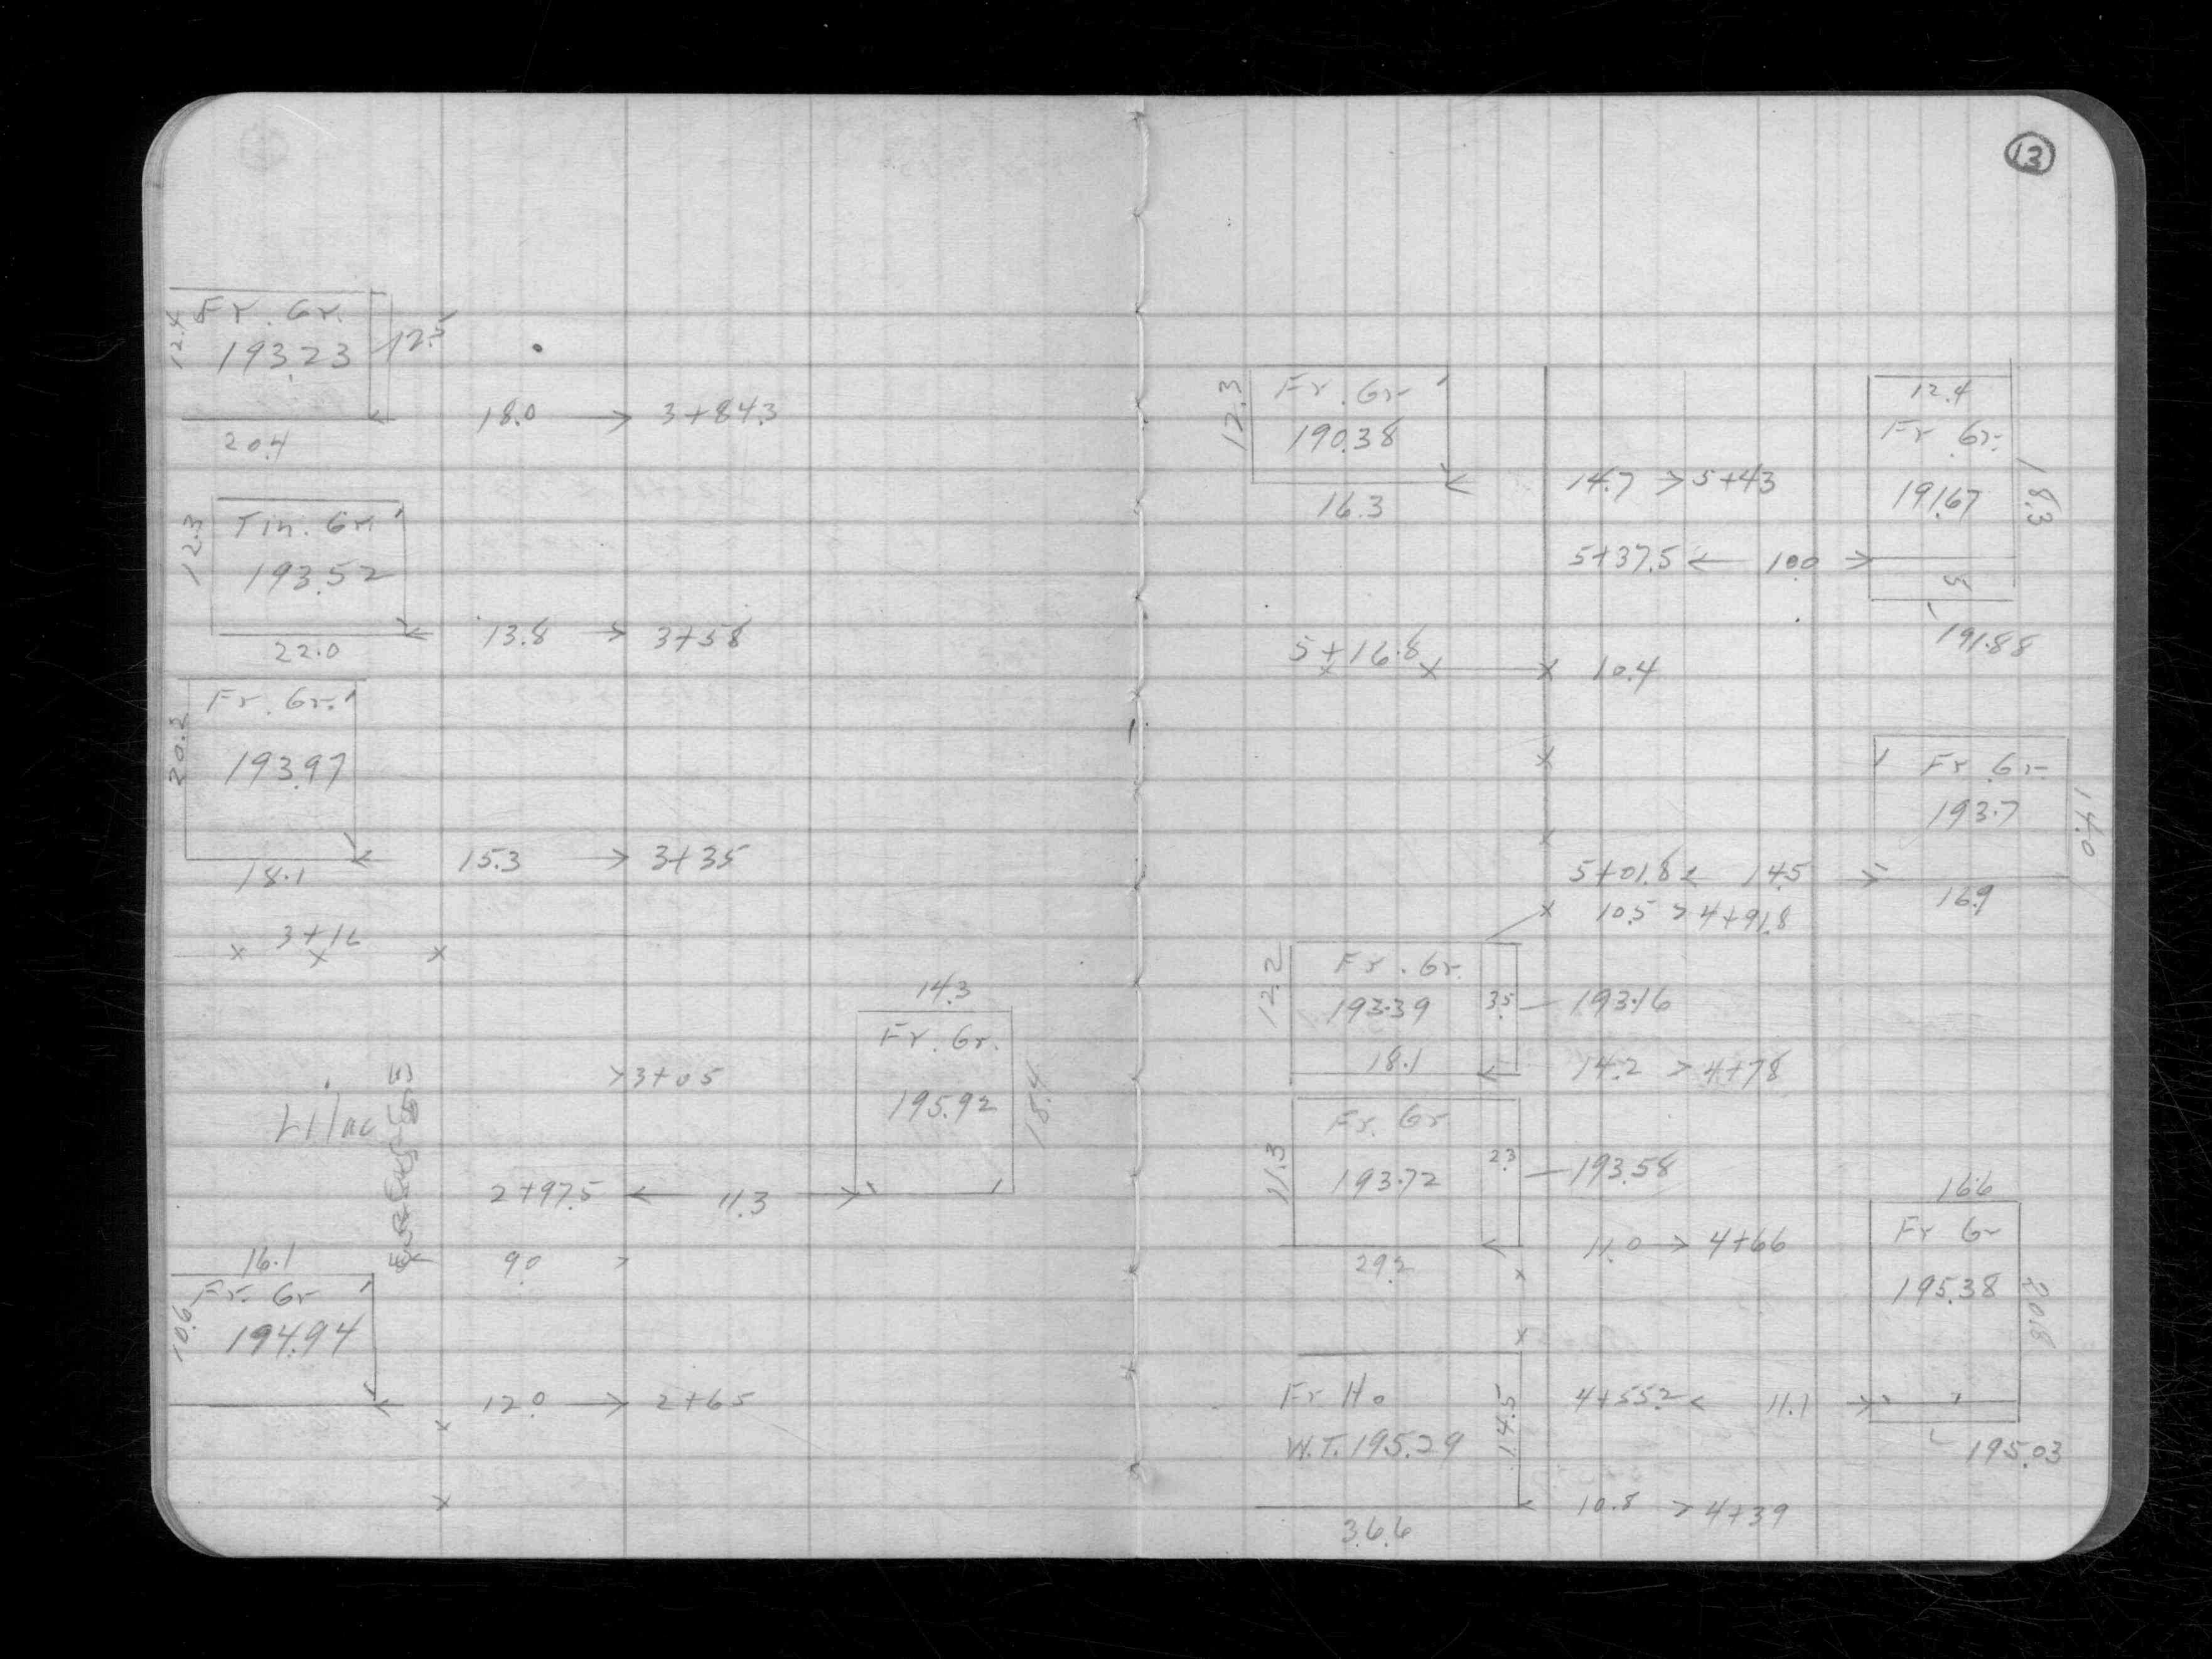 12.4
Fr. Gr.
193.23
12.5
18.0 → 3+84.3
20.4
12.3
Tin. Gr.
193.52
13.8 → 3+58
22.0
20.2
Fr. Gr.
193.97
15.3 → 3+35
18.1
x x x
14.3
Fr. Gr.
>3+05
195.92
18.4
Lilac
2+97.5 ← 11.3 →
9.0 >
16.1
Fr. Gr
10.6
194.94
12.0 → 2+65
x
x
13
12.3
Fr. Gr
190.38
12.4
Fr. Gr.
191.67
18.3
14.7 > 5+43
16.3
5+37.5 ← 10.0 →
191.88
5+16.8
x x x 10.4
x
Fr. Gr.
193.7
14.0
x
5+01.8 < 14.5 →
16.9
x 10.5 > 4+91.8
12.2
Fr. Gr.
193.39
3.5 — 193.16
18.1
14.2 > 4+78
11.3
Fr. Gr
193.72
2.3 — 193.58
11.0 → 4+66
29.2
16.6
Fr Gr
195.38
20.8
x
x
Fr Ho
14.5
4+55.2 < 11.1 →
W.T. 195.29
195.03
10.8 > 4+39
36.6